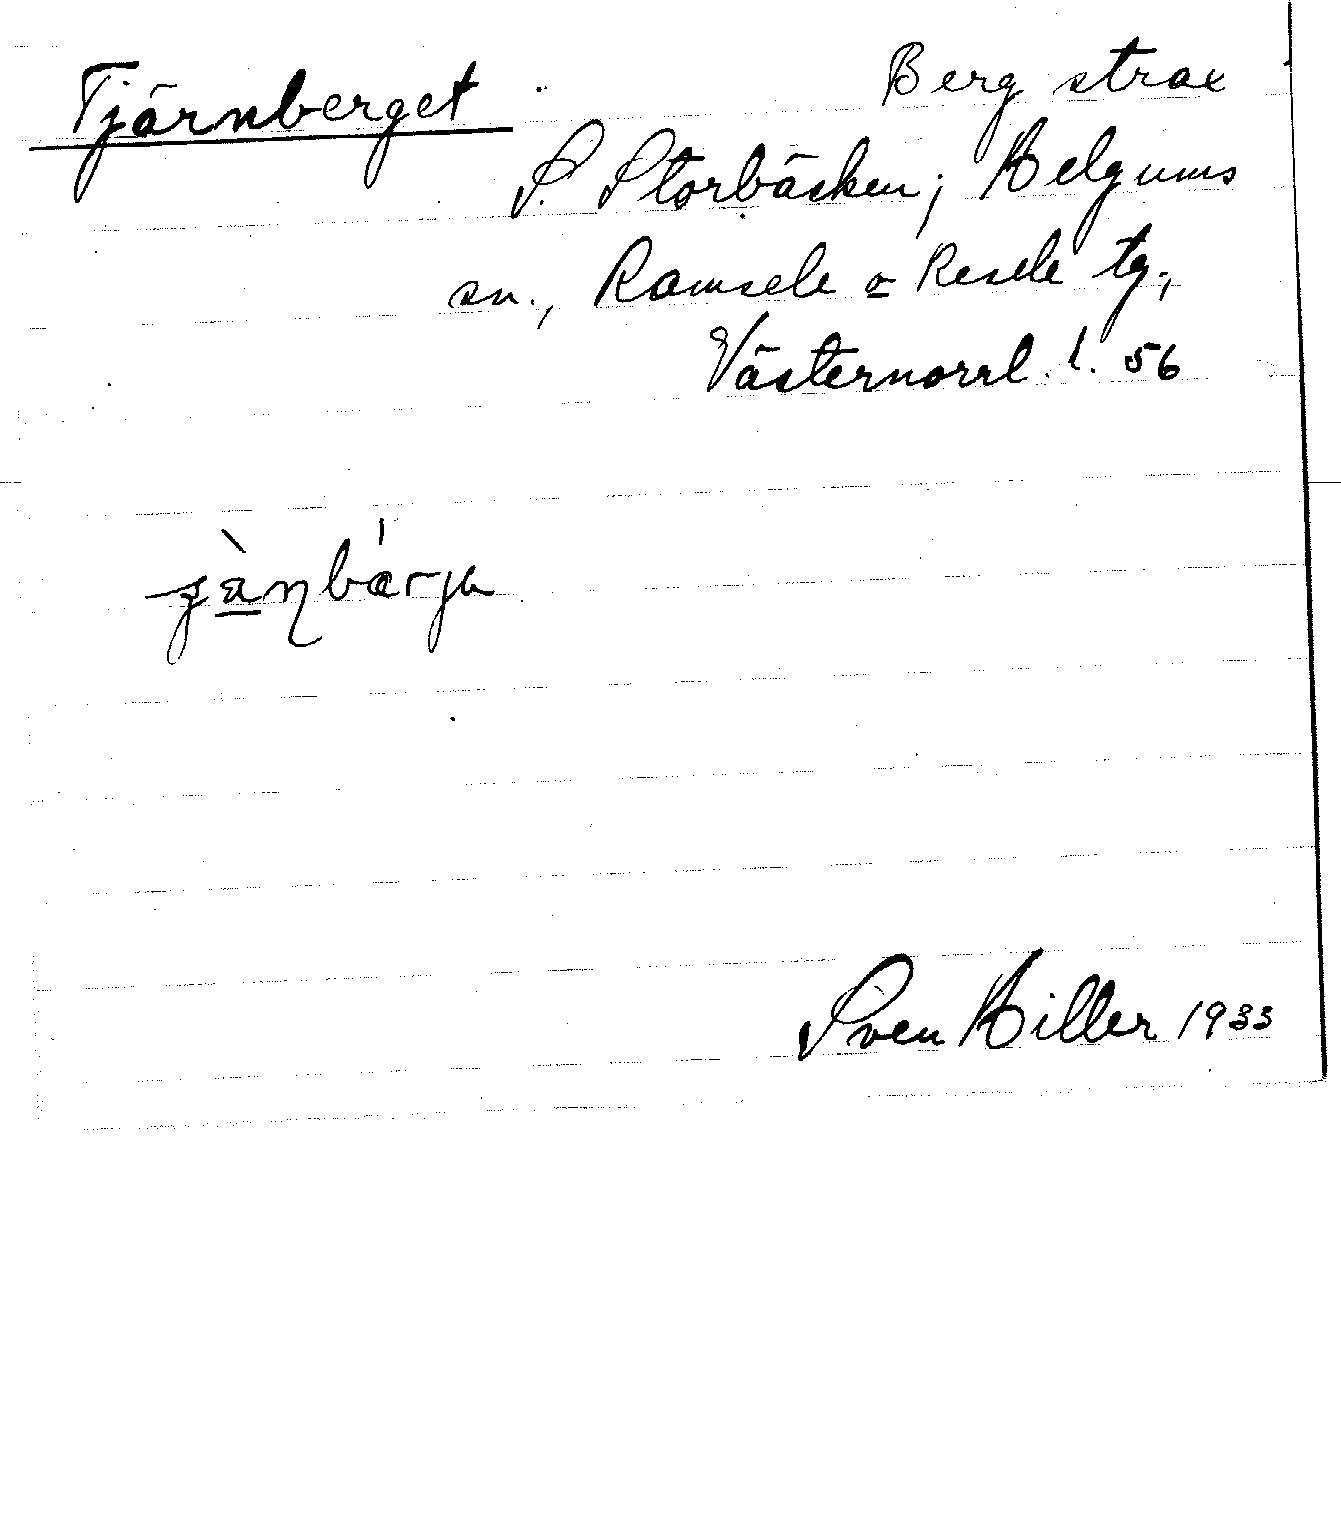 Tjärnberget
Berg strax
S. Storbäcken; Helgums
sn., Ramsele o Resele tg.,
Västernorrl. l. 56
Sven Hiller 1933